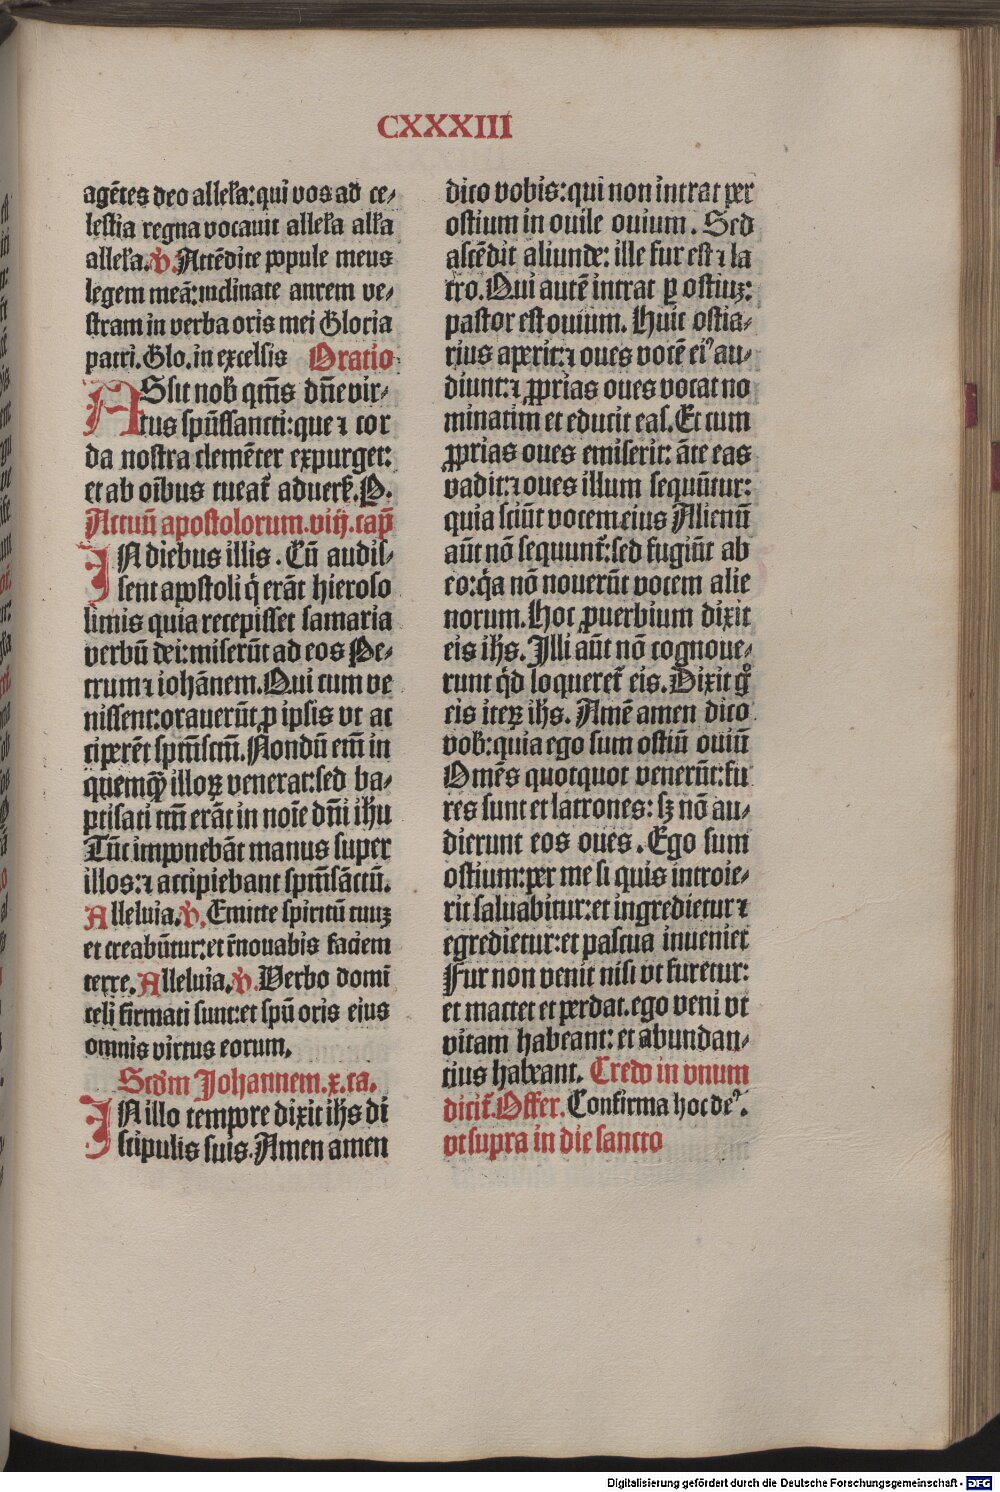 CXXXIII
agētes deo alleła: qui vos ad ce⸗
lestia regna vocauit alleła alła
alleła. ℣. Attēdite popule meus
legem meā: inclinate aurem ve⸗
stram in verba oris mei Gloria
patri. Glo. in excelsis Oratio
ASsit nob̄ qm̄s dn̄e vir⸗
tus spūssancti: que ⁊ cor
da nostra clemēter expurget:
et ab oībus tueat᷑ aduers̄. P.
Actuū apostolorum. viij. cap̄
IN diebus illis. Cū audis⸗
sent apostoli q̄ erāt hieroso
limis quia recepisset samaria
verbū dei: miserūt ad eos Pe⸗
trum ⁊ iohānem. Qui cum ve
nissent: orauerūt ꝓ ipsis vt ac
ciperēt spm̄sctm̄. Nondū em̄ in
quemq̄ illoꝝ venerat: sed ba⸗
ptisati tm̄ erāt in noīe dn̄i ihu
Tūc imponebāt manus super
illos: ⁊ accipiebant spm̄sāctū.
Alleluia. ℣. Emitte spiritū tuuꝫ
et creabūtur: et r̄nouabis faciem
terre. Alleluia. ℣. Verbo domī
celi firmati sunt: et spū oris eius
omnis virtus eorum.
Scd̄m Johannem. x. ca.
IN illo tempore dixit ihs di
scipulis suis. Amen amen
dico vobis: qui non intrat per
ostium in ouile ouium. Sed
ascēdit aliunde: ille fur est ⁊ la
tro. Qui autē intrat ꝑ ostiuꝫ:
pastor est ouium. Huic ostia⸗
rius aperit: ⁊ oues vocē eiꝰ au⸗
diunt: ⁊ ꝓprias oues vocat no
minatim et educit eas. Et cum
ꝓprias oues emiserit: āte eas
vadit: ⁊ oues illum sequūtur:
quia sciūt vocem eius Alienū
aūt nō sequunt᷑: sed fugiūt ab
eo: q̄a nō nouerūt vocem alie
norum. Hoc ꝓuerbium dixit
eis ihs. Illi aūt nō cognoue⸗
runt q̄d loqueret᷑ eis. Dixit gͦ
eis iteꝝ ihs. Amē amen dico
vob̄: quia ego sum ostiū ouiū
Omēs quotquot venerūt: fu
res sunt et latrones: sꝫ nō au⸗
dierunt eos oues. Ego sum
ostium: per me si quis introie⸗
rit saluabitur: et ingredietur ⁊
egredietur: et pascua inueniet
Fur non venit nisi vt furetur:
et mactet et perdat. ego veni vt
vitam habeant: et abundan⸗
tius habeant. Credo in vnum
dicit᷑. Offer. Confirma hoc deꝰ.
vt supra in die sancto
Digitalisierung gefördert durch die Deutsche Forschungsgemeinschaft - DFG